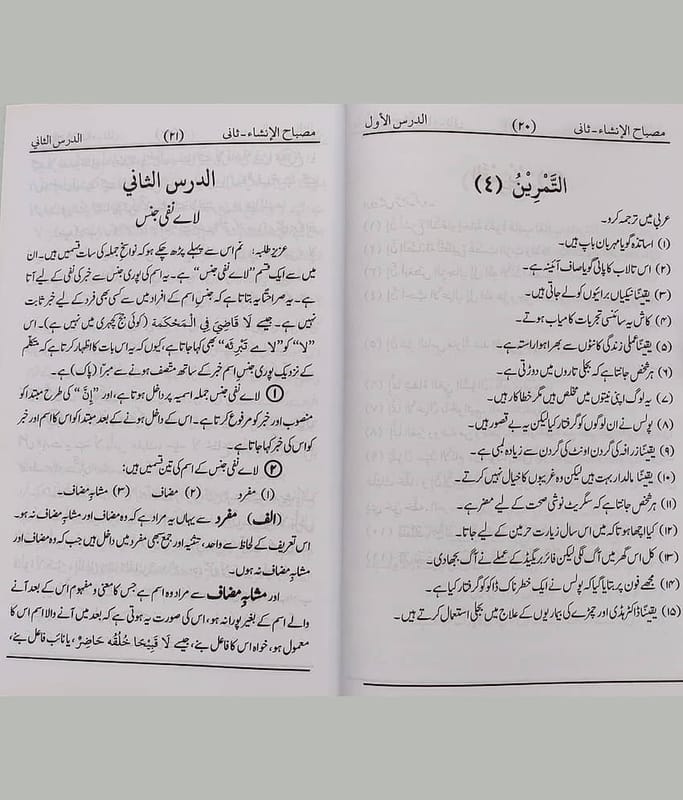 مصباح الإنشاء-ثانی (۲۰) الدرس الأول
التَّمْرِيْنُ (٤)
عربی میں ترجمہ کرو۔
(۱) اساتذہ گویا مہربان باپ ہیں۔
(۲) اس تالاب کا پانی گویا صاف آئینہ ہے۔
(۳) یقیناً نیکیاں برائیوں کو لے جاتی ہیں۔
(۴) کاش یہ سائنسی تجربات کامیاب ہوتے۔
(۵) یقیناً عملی زندگی کانٹوں سے بھرا ہوا راستہ ہے۔
(۶) ہر شخص جانتا ہے کہ بجلی تاروں میں دوڑتی ہے۔
(۷) یہ لوگ اپنی نیتوں میں مخلص ہیں مگر خطا کار ہیں۔
(۸) پولس نے ان لوگوں کو گرفتار کیا لیکن یہ بے قصور ہیں۔
(۹) یقیناً زرافہ کی گردن اونٹ کی گردن سے زیادہ لمبی ہے۔
(۱۰) یقیناً مالدار بہت ہیں لیکن وہ غریبوں کا خیال نہیں کرتے۔
(۱۱) ہر شخص جانتا ہے کہ سگریٹ نوشی صحت کے لیے مضر ہے۔
(۱۲) کیا اچھا ہوتا کہ میں اس سال زیارت حرمین کے لیے جاتا۔
(۱۳) کل اس گھر میں آگ لگی لیکن فائر بریگیڈ کے عملے نے آگ بجھادی۔
(۱۴) مجھے فون پر بتایا گیا کہ پولس نے ایک خطرناک ڈاکو کو گرفتار کیا ہے۔
(۱۵) یقیناً ڈاکٹر ہڈی اور چمڑے کی بیماریوں کے علاج میں بجلی استعمال کرتے ہیں۔
مصباح الإنشاء-ثانی (۲۱) الدرس الثاني
الدرس الثاني
لائے نفی جنس
عزیز طلبہ: تم اس سے پہلے پڑھ چکے ہو کہ نواسخ جملہ کی سات قسمیں ہیں۔ ان
میں سے ایک قسم ”لائے نفی جنس“ ہے۔ یہ اسم کی پوری جنس سے خبر کی نفی کے لیے آتا
ہے۔ یہ صراحتاً یہ بتاتا ہے کہ جنس اسم کے افراد میں سے کسی بھی فرد کے لیے خبر ثابت
نہیں ہے۔ جیسے لَا قَاضِيَ فِي الْمَحْكَمَة (کوئی جج کچہری میں نہیں ہے)۔ اس
”لا“ کو ”لائے تَبْرِئَه“ بھی کہا جاتا ہے، کیوں کہ یہ اس بات کا اظہار کرتا ہے کہ متکلم
کے نزدیک پوری جنس اسم خبر کے ساتھ متصف ہونے سے مبرّا (پاک) ہے۔
① لائے نفی جنس جملہ اسمیہ پر داخل ہوتا ہے، اور ”إنَّ“ کی طرح مبتدا کو
منصوب اور خبر کو مرفوع کرتا ہے۔ اس کے داخل ہونے کے بعد مبتدا کو اس کا اسم اور خبر
کو اس کی خبر کہا جاتا ہے۔
② لائے نفی جنس کے اسم کی تین قسمیں ہیں:
(۱) مفرد (۲) مضاف (۳) مشابہِ مضاف۔
(الف) مفرد سے یہاں یہ مراد ہے کہ وہ مضاف اور مشابہِ مضاف نہ ہو۔
اس تعریف کے لحاظ سے واحد، تثنیہ اور جمع بھی مفرد میں داخل ہیں جب کہ وہ مضاف اور
مشابہِ مضاف نہ ہوں۔
اور مشابہِ مضاف سے مراد وہ اسم ہے جس کا معنی و مفہوم اس کے بعد آنے
والے اسم کے بغیر پورا نہ ہو، اس کی صورت یہ ہوتی ہے کہ بعد میں آنے والا اسم اس کا
معمول ہو، خواہ اس کا فاعل بنے، جیسے لَا قَبِيْحًا خُلُقُه حَاضِرٌ، یا نائب فاعل بنے،